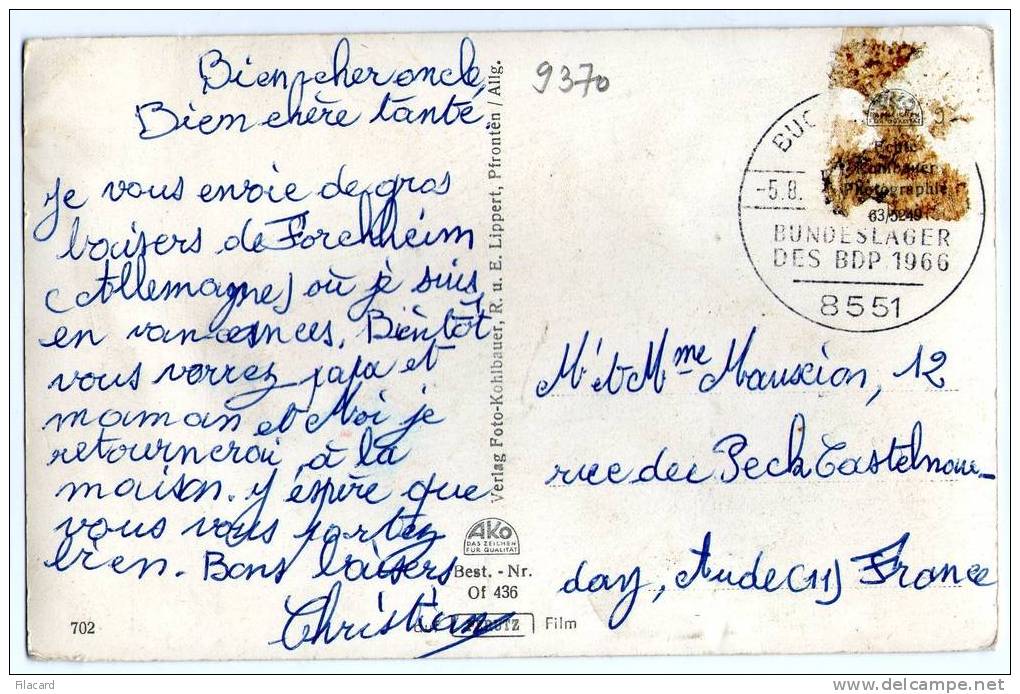 Bien cher oncle,
Bien chère tante,
Je vous envoie de gros
baisers de Forchheim
(Allemagne) où je suis
en vances. Bientôt
vous verrez papa et
maman et Moi je
retournerai à la
maison. J'éspère que
vous vous portez
bien. Bons baisers
Christian
702
Verlag Foto-Kohlbauer, R. u. E. Lippert, Pfronten / Allg.
AKO
DAS ZEICHEN
FÜR QUALITÄT
Best. - Nr.
Of 436
Film
9370
AKO
Echte
Kohlbauer
Photographie
63/5249
BUC
-5.8.
BUNDESLAGER
DES BDP 1966
8551
Mr et Mme Mauxion, 12
rue du Pech Castelnau-
day, Aude (11) France
Filacard
http://filacard.delcampe.net